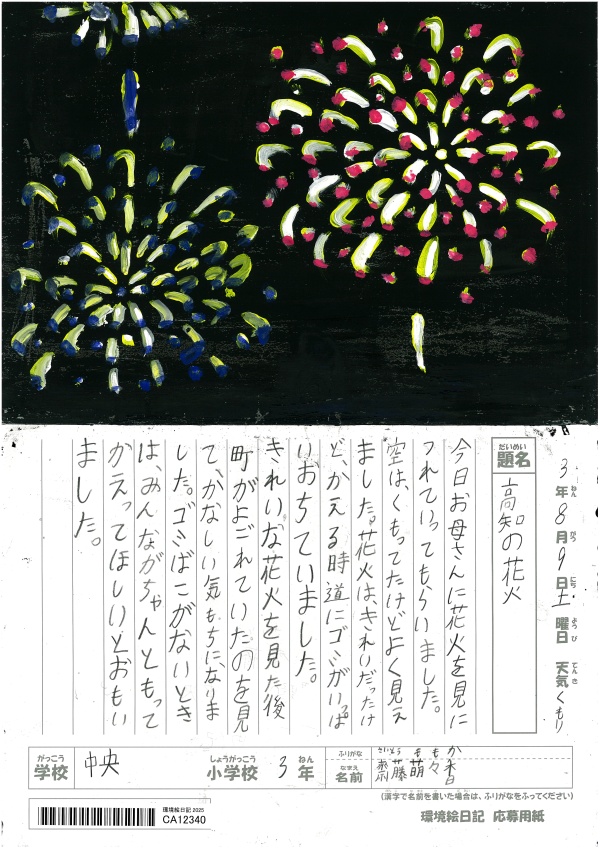 3年8月9日土曜日 天気くもり
ねん がつ にち ようび てんき
だいめい
題名
高知の花火
今日お母さんに花火を見に
つれていってもらいました。
空は、くもってたけどよく見え
ました。花火は、きれいだったけ
ど、かえる時道にゴミがいっぱ
いおちていました。
きれいな花火を見た後
町がよごれていたのを見
て、かなしい気もちになりま
した。ゴミばこがないとき
は、みんながちゃんともって
かえってほしいとおもい
ました。
がっこう
学校
中央
しょうがっこう
小学校
3
ねん
年
ふりがな
さいとう ももか
なまえ
名前
齋藤萌々香
(漢字で名前を書いた場合は、ふりがなをふってください)
環境絵日記 2025
CA12340
環境絵日記 応募用紙